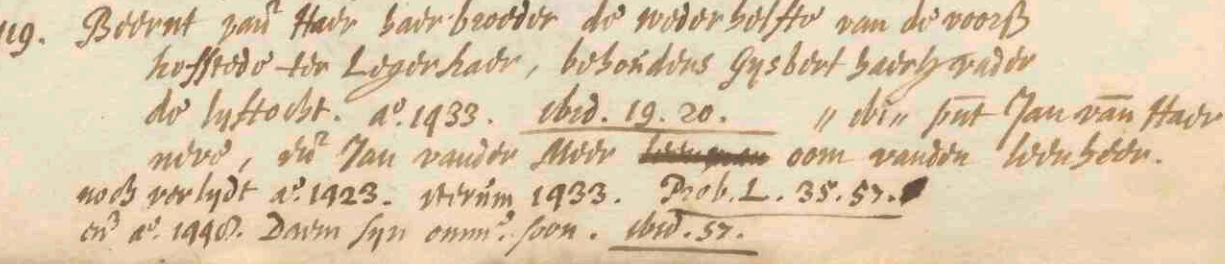 119. Beernt van Haer haer broeder de wederhelfte van de voorß
hoffstede ter Legerhaer, behoudens Gysbert haerl. vader
de lyftocht. aº. 1433. ibid. 19. 20. „ ibi „ sūt Jan vañ Haer
neve, eñ Jan vander Meer oom vanden leenheer.
noß verlydt aº. 1423. iterum 1433. Prob. L. 35. 57.
eñ aº. 1448. Daem syn onm. soon. ibid. 57.